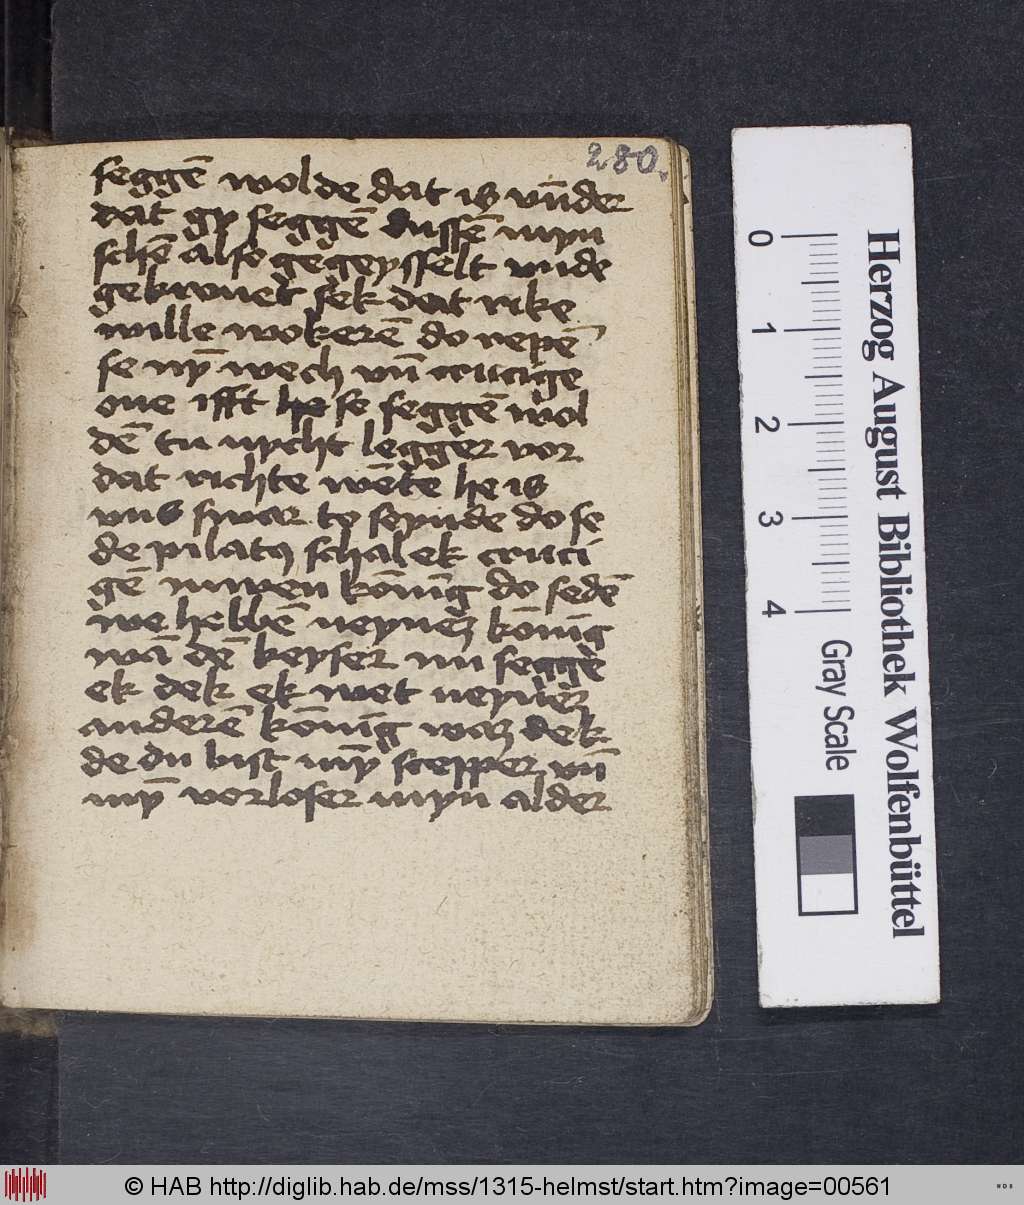 280.
seggē wolde dat is vn̄der
dat gy seggē dussē myn
schē also gegeysselt vnde
gekronet sek dat rike
wille wokerē do repē
se ny̅ wech vn̄ crucige
one ifft hy se seggē wol
dē tu nycht legger vor
dat richte wēte he is
vns swar to seynde do se
de pilatꝰ schal ek cruci
gē juwen kōnīg do sedē
we hebbē neynez kōnīg
wā dē keyser nu seggē
ek dek ek wet neynez
anderē kōnīg waz dek
de du bist my̅ scepper vn̄
my̅ vorloser myn alder
Herzog August Bibliothek Wolfenbüttel
Gray Scale
0 1 2 3 4
© HAB http://diglib.hab.de/mss/1315-helmst/start.htm?image=00561